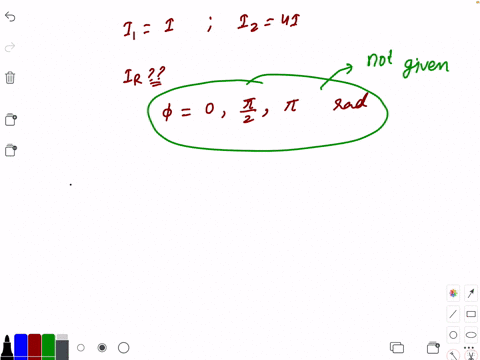 I₁ = I ; I₂ = 4I
I_R ??
not given
ϕ = 0, π/2, π rad